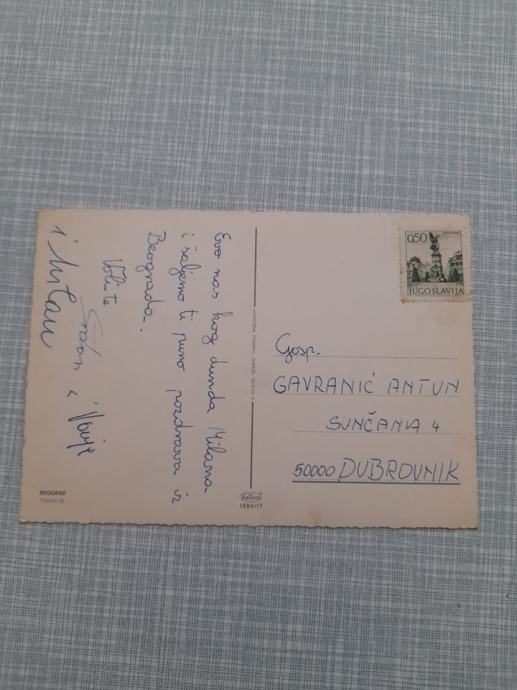 Evo nas kod dunda Milana
i šaljemo ti puno pozdrava iz
Beograda.
Vole te
i Vanje
i Milan
BEOGRAD
TERAZIJE
1584/17
0,50
JUGOSLAVIJA
Gosp.
GAVRANIĆ ANTUN
SUNČANA 4
50000 DUBROVNIK